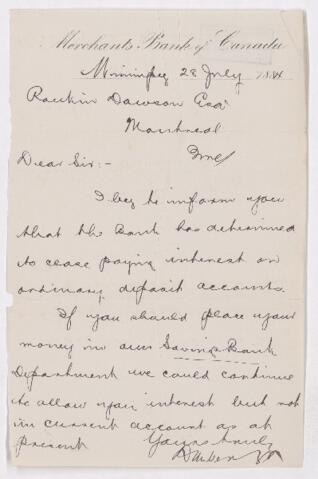 Merchants Bank of Canada
Winnipeg 28 July 1884
Rankin Dawson Esq
Montreal
Dear Sir:-
I beg to inform you
that the Bank has determined
to cease paying interest on
ordinary deposit accounts.
If you should place your
money in our Savings Bank
Department we could continue
to allow you interest but not
in current account as at
present
Yours truly